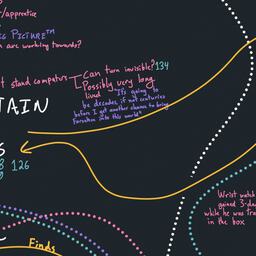 /apprentice
IG PICTURE™
n are working towards?
t stand computers
Can turn invisible? 134
Possibly very long
lived
"It's going to
be decades, if not centuries
before I get another chance to bring
Forsaken into this world"
TAIN
S
8 126
9
Wrist watch
gained 3-da
while he was tra
in the box
Finds